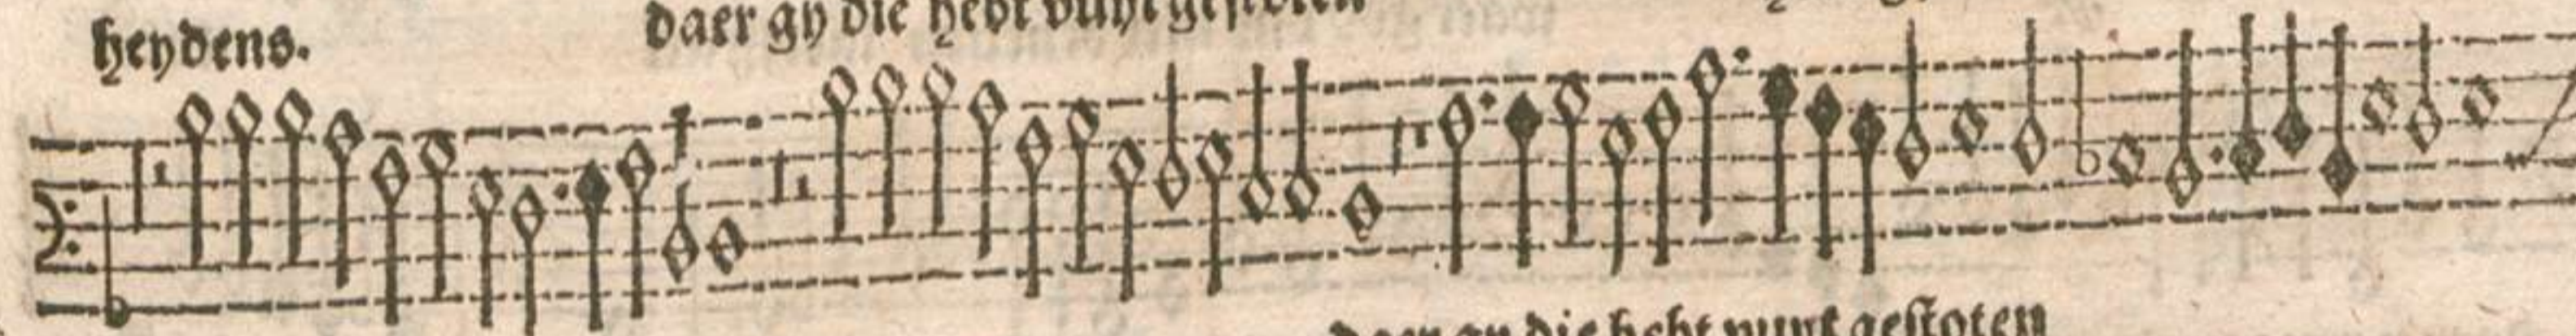 heydens.
daer gy die hebt vuyt gestoten
daer gy die hebt vuyt gestoten